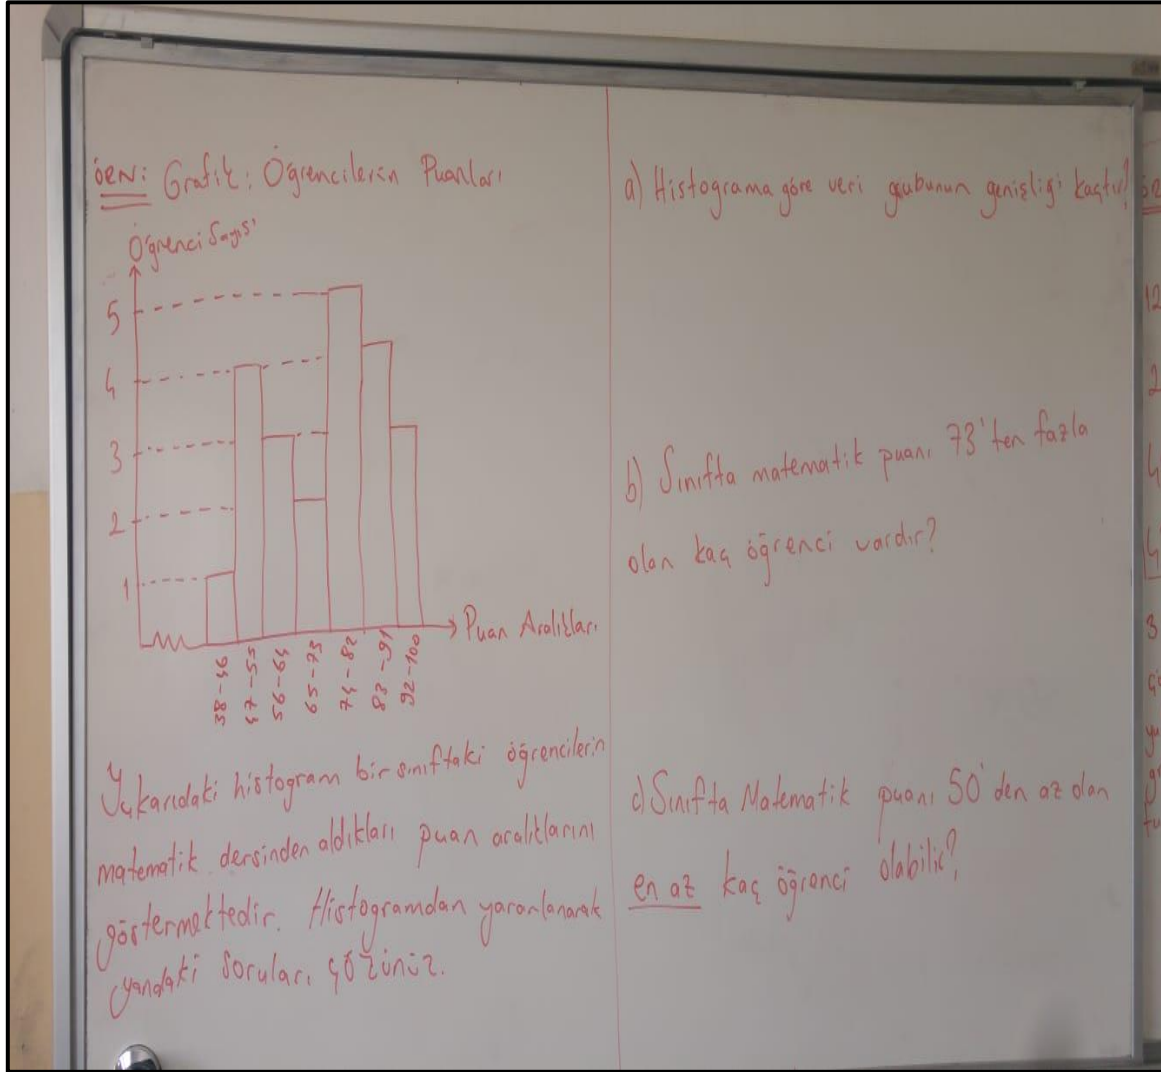 ÖRN: Grafik: Öğrencilerin Puanları
Öğrenci Sayısı
5
4
3
2
1
Puan Aralıkları
38-46
47-55
56-64
65-73
74-82
83-91
92-100
Yukarıdaki histogram bir sınıftaki öğrencilerin
matematik dersinden aldıkları puan aralıklarını
göstermektedir. Histogramdan yararlanarak
yandaki soruları çözünüz.
a) Histograma göre veri grubunun genişliği kaçtır?
b) Sınıfta matematik puanı 73'ten fazla
olan kaç öğrenci vardır?
c) Sınıfta Matematik puanı 50'den az olan
en az kaç öğrenci olabilir?
12
2
3